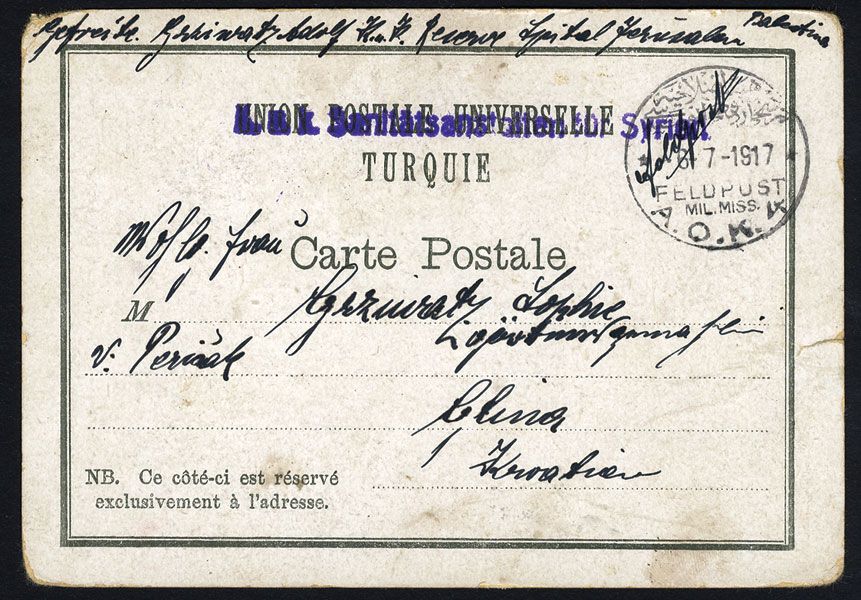 Gefreite. Grzinratz Adolf K.u.K. Reserve Spital Jerusalem Palestina
UNION POSTALE UNIVERSELLE
K. u. k. Sanitätsanstalten für Syrien.
TURQUIE
Feldpost
7-1917
FELDPOST
MIL. MISS.
A.O.K. 4
Carte Postale
Wohlg. Frau
M Sophie
v. Perišak
Glina
Kroatien
NB. Ce côté-ci est réservé
exclusivement à l'adresse.